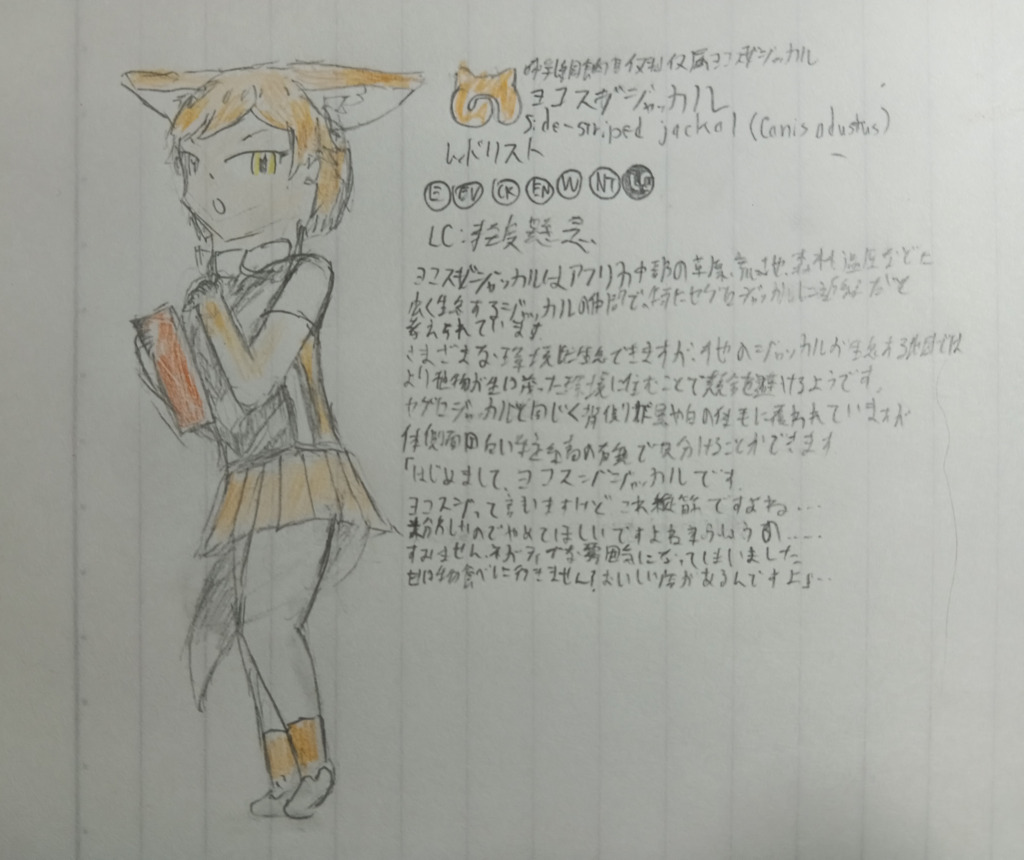 哺乳綱食肉目イヌ科イヌ属ヨコスジジャッカル
ヨコスジジャッカル
Side-striped jackal (Canis adustus)
レッドリスト
E EW CR EN VU NT LC
LC:軽度懸念
ヨコスジジャッカルはアフリカ中部の草原、荒れ地、湿原などに
広く生息するジャッカルの仲間で、特にセグロジャッカルに近縁だと
考えられています
さまざまな環境に生息できますが、他のジャッカルが生息する地域では
より植物が生い茂った環境に住むことで競合を避けるようです。
セグロジャッカルと同じく背側が黒や白の体毛に覆われていますが
体側面の白い の有無で見分けることができます
「はじめまして、ヨコスジジャッカルです。
ヨコスジって言いますけどこれ縦筋ですよね...
紛らわしいのでやめてほしいですよねもう .....
すみません、ネガティブな雰囲気になってしまいました
甘い物食べに行きません?おいしい店があるんですよ」...